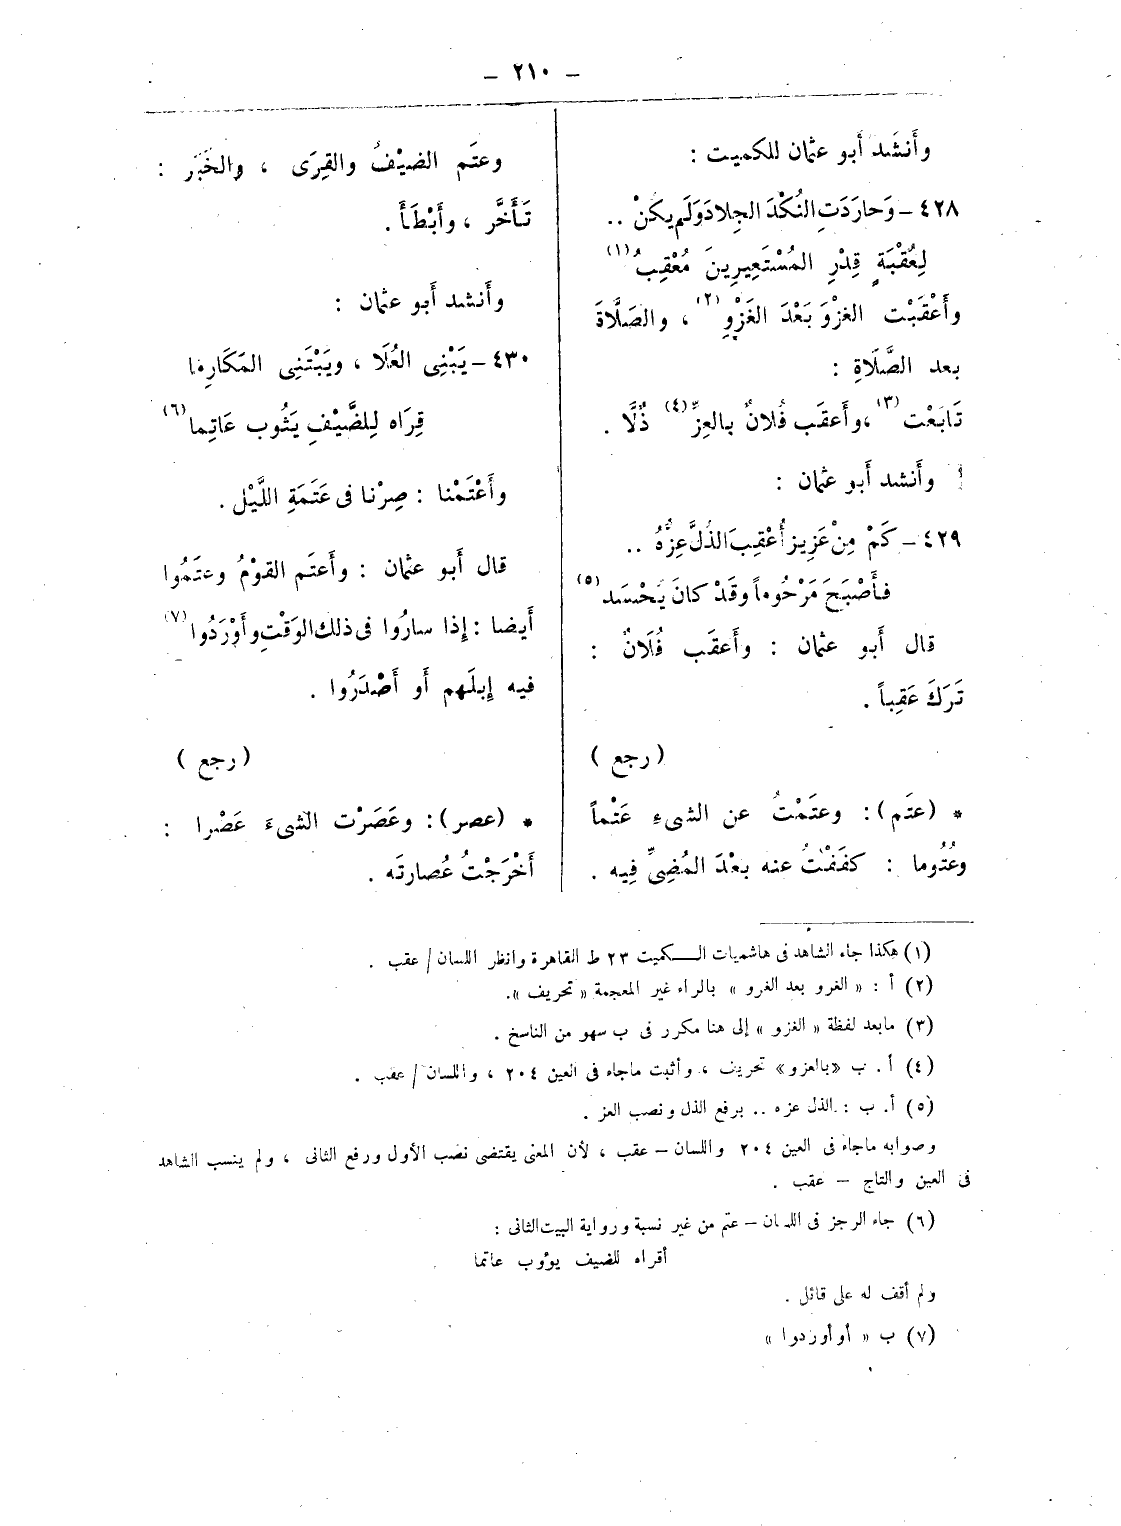 – ٢١٠ –
وأَنشَد أَبو عثمان للكميت :
٤٢٨ – وَحارَدَتِ النُكْدَ الجِلادَ وَلَم يكُنْ ..
لِعُقْبَةِ قِدْرِ المُسْتَعِيرِينَ مُعْقِبُ (١)
وأَعْقَبْت الغزْوَ بَعْدَ الغَزْوِ (٢) ، والصَلَّاةَ
بعد الصَّلَاةِ :
تَابَعْت (٣) ، وأَعقَب فُلانٌ بالعِزِّ (٤) ذُلًّا .
وأَنشد أَبو عثمان :
٤٢٩ – كَمْ مِنْ عَزِيز أُعْقِبَ الذُلَّ عِزُّهُ ..
فأَصْبَحَ مَرْحُوماً وقَدْ كانَ يُحْسَد (٥)
قال أَبو عثمان : وأَعقَب فُلَانٌ :
تَرَكَ عَقِباً .
( رجع )
* (عتَم) : وعتَمْتُ عن الشىءِ عَتْماً
وعُتُوما : كفَفْتُ عنه بعْدَ المُضِىِّ فِيه .
وعتَم الضيْفُ والقِرَى ، والخَبَر :
تَأَخَّر ، وأَبْطَأَ .
وأَنشد أَبو عثمان :
٤٣٠ – يَبْنِى العُلَا ، ويَبْتَنِى المَكَارِما
قِرَاه لِلضَّيْفِ يَثُوب عَاتِما (٦)
وأَعْتَمْنا : صِرْنا فى عَتَمَةِ اللَّيْل .
قال أَبو عثمان : وأَعتَم القوْمُ وعتَمُوا
أَيضا : إِذا سارُوا فى ذلك الوَقْتِ وأَوْرَدُوا (٧)
فيه إِبلَهم أَو أَصْدَرُوا .
( رجع )
* (عصر) : وعَصَرْت الشىءَ عَصْرا :
أَخْرَجْتُ عُصارتَه .
(١) هكذا جاء الشاهد فى هاشميات الكميت ٢٣ ط القاهرة وانظر اللسان / عقب .
(٢) أ : « الغرو بعد الغرو » بالراء غير المعجمة « تحريف ».
(٣) مابعد لفظة « الغزو » إلى هنا مكرر فى ب سهو من الناسخ .
(٤) أ . ب «بالعزو» تحريف ، وأثبت ماجاء فى العين ٢٠٤ ، واللسان / عقب .
(٥) أ. ب : الذل عزه .. برفع الذل ونصب العز .
وصوابه ماجاء فى العين ٢٠٤ واللسان – عقب ، لأن المعنى يقتضى نصب الأول ورفع الثانى ، ولم ينسب الشاهد
فى العين والتاج – عقب .
(٦) جاء الرجز فى اللسان – عتم من غير نسبة ورواية البيت الثانى :
أقراه للضيف يؤوب عاتما
ولم أقف له على قائل .
(٧) ب « أو أوردوا »